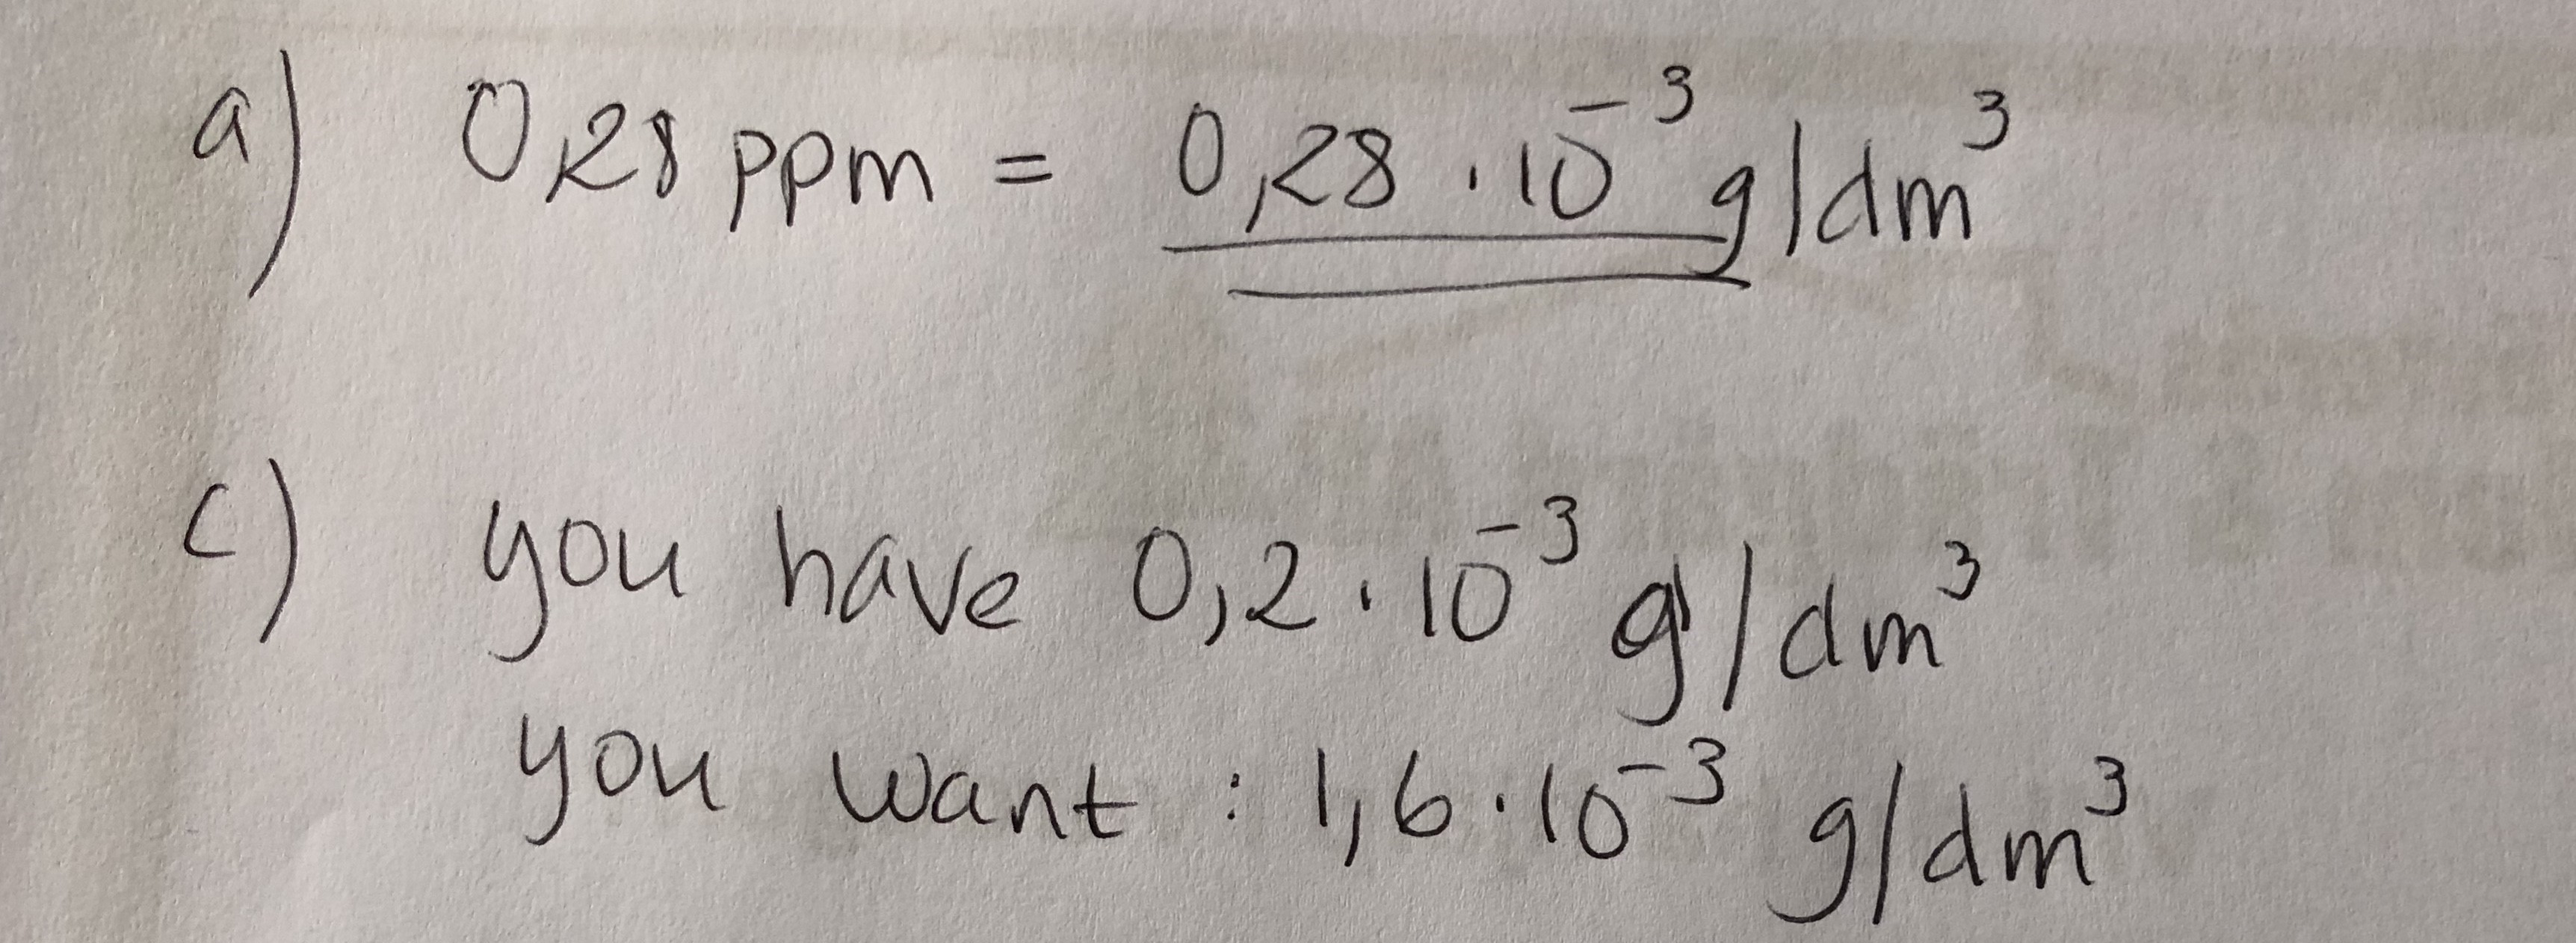 a) 0,28 ppm = 0,28 · 10⁻³ g/dm³
c) you have 0,2 · 10⁻³ g/dm³
you want : 1,6 · 10⁻³ g/dm³